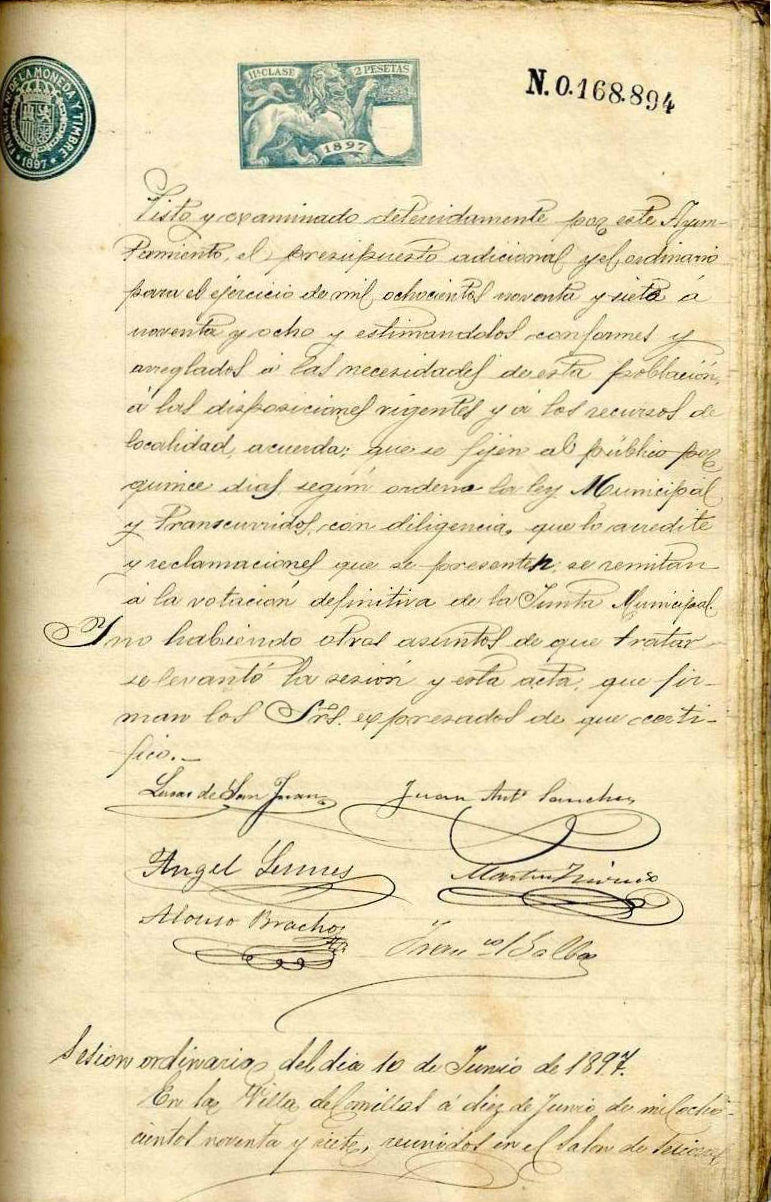 FABRICA Nal. DE LA MONEDA Y TIMBRE
* 1897 *
11ª CLASE 2 PESETAS
1897
N. 0.168.894
Visto y examinado detenidamente por este Ayun-
tamiento, el presupuesto adicional y el ordinario
para el ejercicio de mil ochocientos noventa y siete á
noventa y ocho y estimandolos conformes y
arreglados á las necesidades de esta población,
á las disposiciones vigentes y á los recursos de
localidad, acuerda: que se fijen al público por
quince dias, segun ordena la ley Municipal
y transcurridos, con diligencia, que lo acredite
y reclamaciones que se presenten, se remitan
á la votación definitiva de la Junta Municipal.
Y no habiendo otros asuntos de que tratar
se levantó la sesión y esta acta, que fir-
man los Sres. expresados de que certi-
fico.-
Lucas de San Juan
Juan Antº Sanchez
Angel
Martin
Alonso Bracho
Franco Balbas
Sesion ordinaria del dia 10 de Junio de 1897.
En la Villa de Comillas á diez de Junio de mil ocho-
cientos noventa y siete, reunidos en el Salon de Sesiones